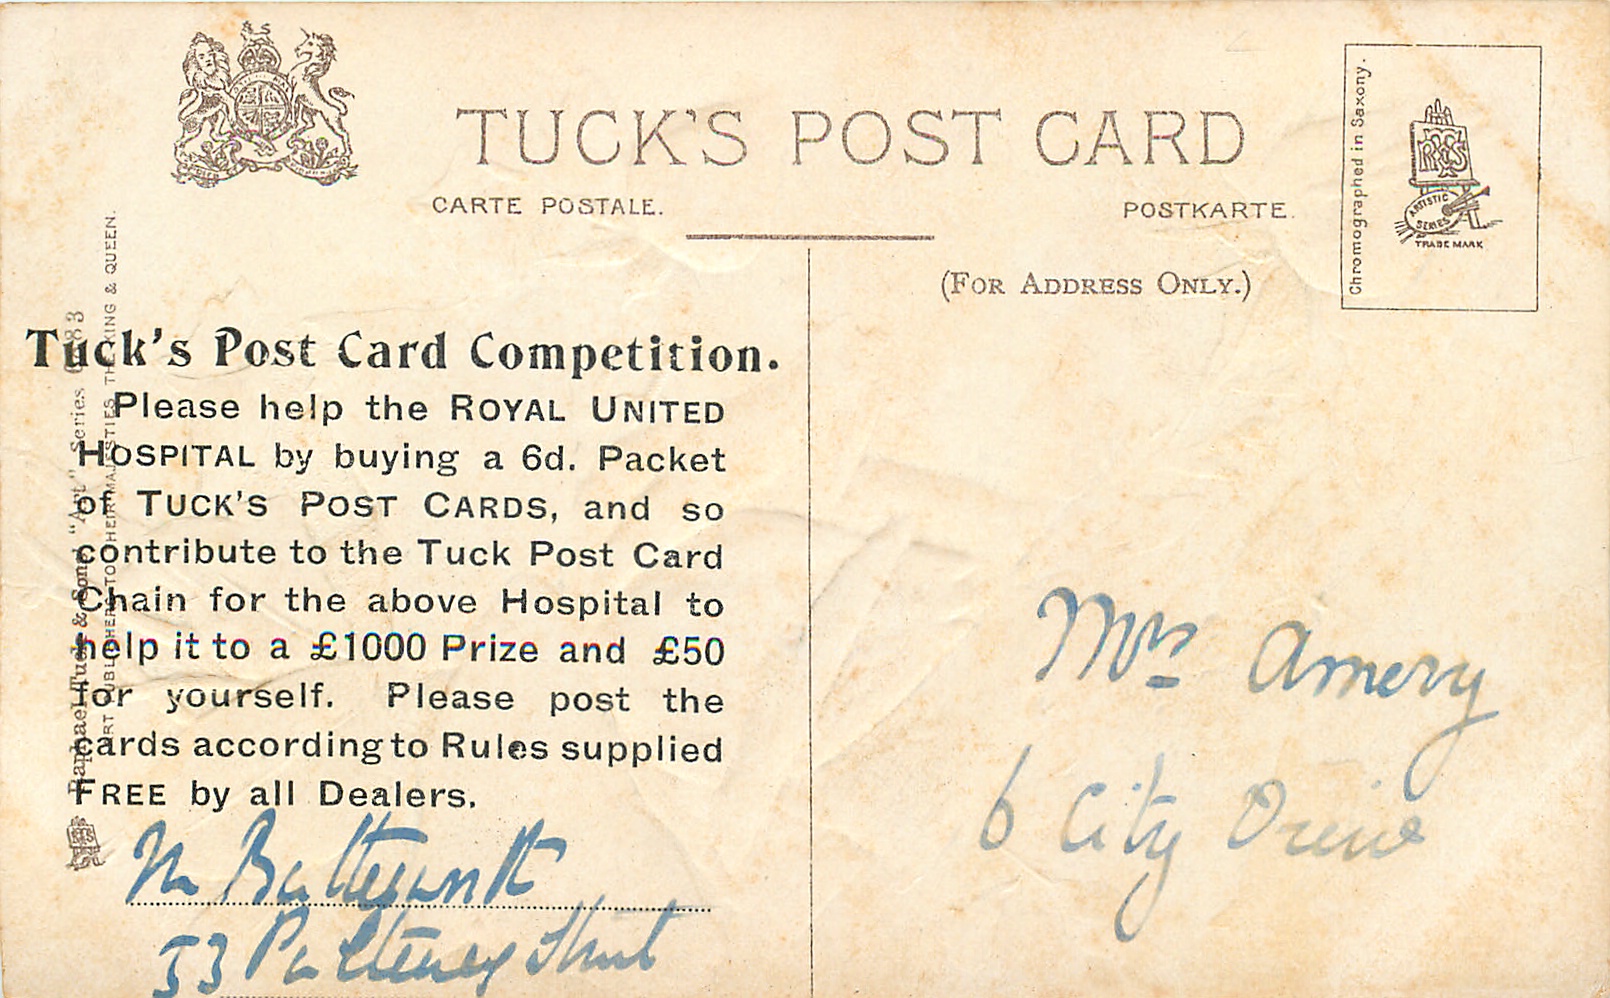 TUCK'S POST CARD
CARTE POSTALE.
POSTKARTE.
(FOR ADDRESS ONLY.)
Chromographed in Saxony.
ARTISTIC
SERIES
TRADE MARK
Tuck's Post Card Competition.
Please help the ROYAL UNITED
HOSPITAL by buying a 6d. Packet
of TUCK'S POST CARDS, and so
contribute to the Tuck Post Card
Chain for the above Hospital to
help it to a £1000 Prize and £50
for yourself. Please post the
cards according to Rules supplied
FREE by all Dealers.
Raphael Tuck & Sons "Art" Series
ART PUBLISHERS TO THEIR MAJESTIES THE KING & QUEEN.
53 Pulteney Street
Mrs Amery
6 City